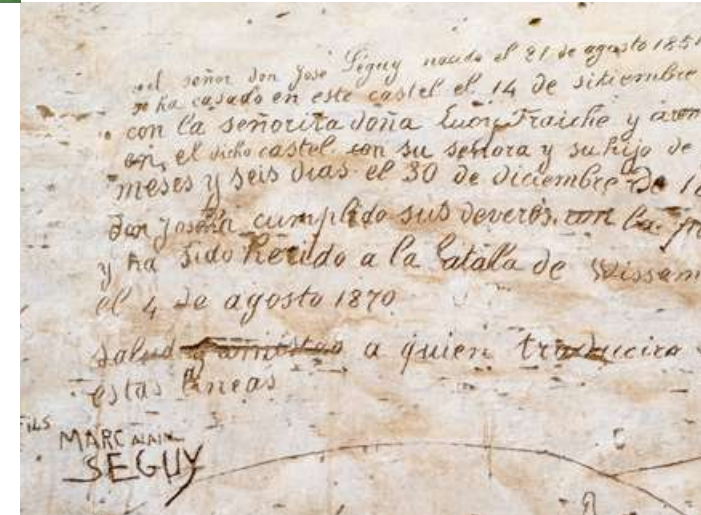 el señor don José Séguy nacido el 21 de agosto 1851
se ha casado en este castel el 14 de sitiembre
con la señorita doña Lucy Fraiche y
en el dicho castel con su señora y su hijo de
meses y seis dias el 30 de diciembre de 18
don José ha cumplido sus deveres con la
y ha sido herido a la batalla de Wissem
el 4 de agosto 1870
salud y amistad a quien traducira
estas lineas
FILS
MARC ALAIN
SEGUY